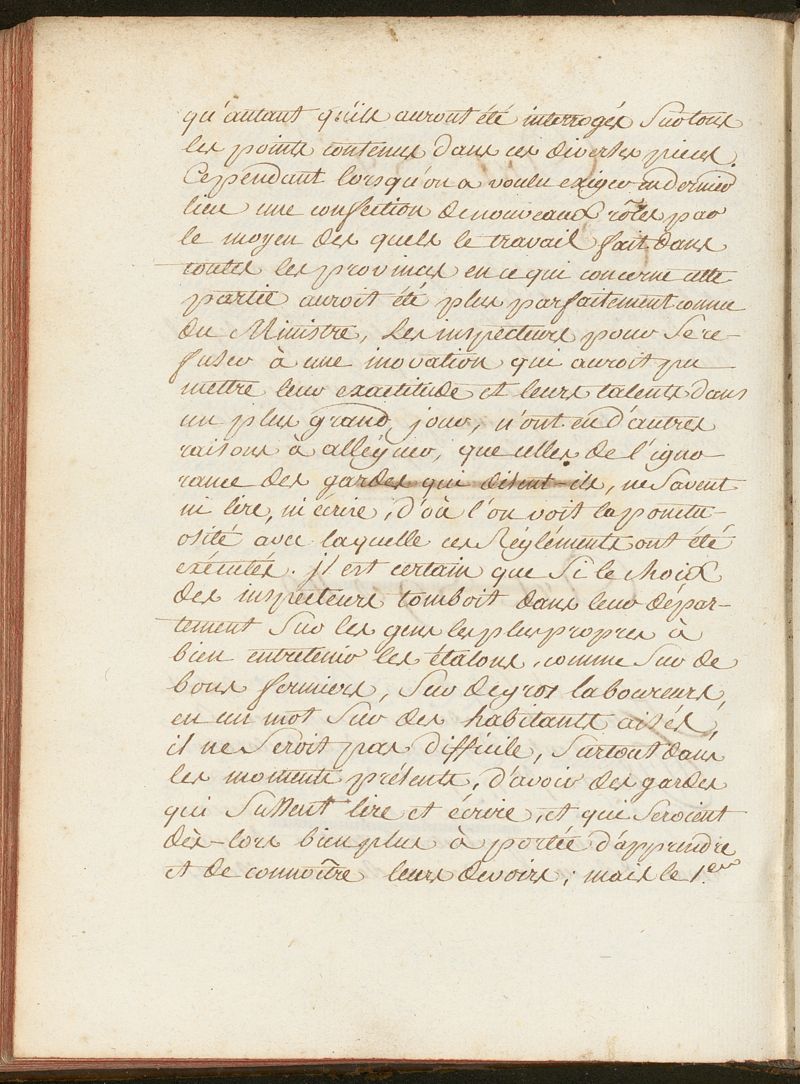 qu'autant qu'ils auront été interrogés sur tous
les points contenus dans ces diverses pieces.
Cependant lorsqu'on a voulu exiger en dernier
lieu une confection de nouveaux rôles par
le moyen des quels le travail fait dans
toutes les provinces en ce qui concerne cette
partie auroit été plus parfaitement connue
du Ministre, les inspecteurs pour se re-
fuser à une inovation qui auroit pu
mettre leur exactitude et leurs talents dans
un plus grand jour, n'ont eu d'autres
raisons à alléguer, que celles de l'igno
rance des gardes qui disent-ils, ne savent
ni lire, ni écrire, d'où l'on voit la ponctu-
osité avec laquelle ces Réglements ont été
exécutés. jl est certain que si le choix
des inspecteurs tomboit dans leur dépar-
tement sur les gens les plus propres à
bien entretenir les étalons, comme sur de
bons fermiers, sur de gros laboureurs,
en un mot sur des habitants aisés,
il ne seroit pas difficile, surtout dans
les moments présents, d'avoir des gardes
qui sussent lire et écrire, et qui seroient
dès-lors bien plus à portée d'apprendre
et de connoître leurs devoirs; mais le 1.er